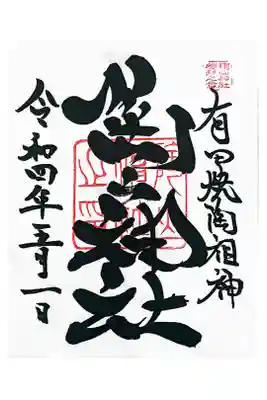 有田焼陶祖神
陶山神社
令和四年五月一日